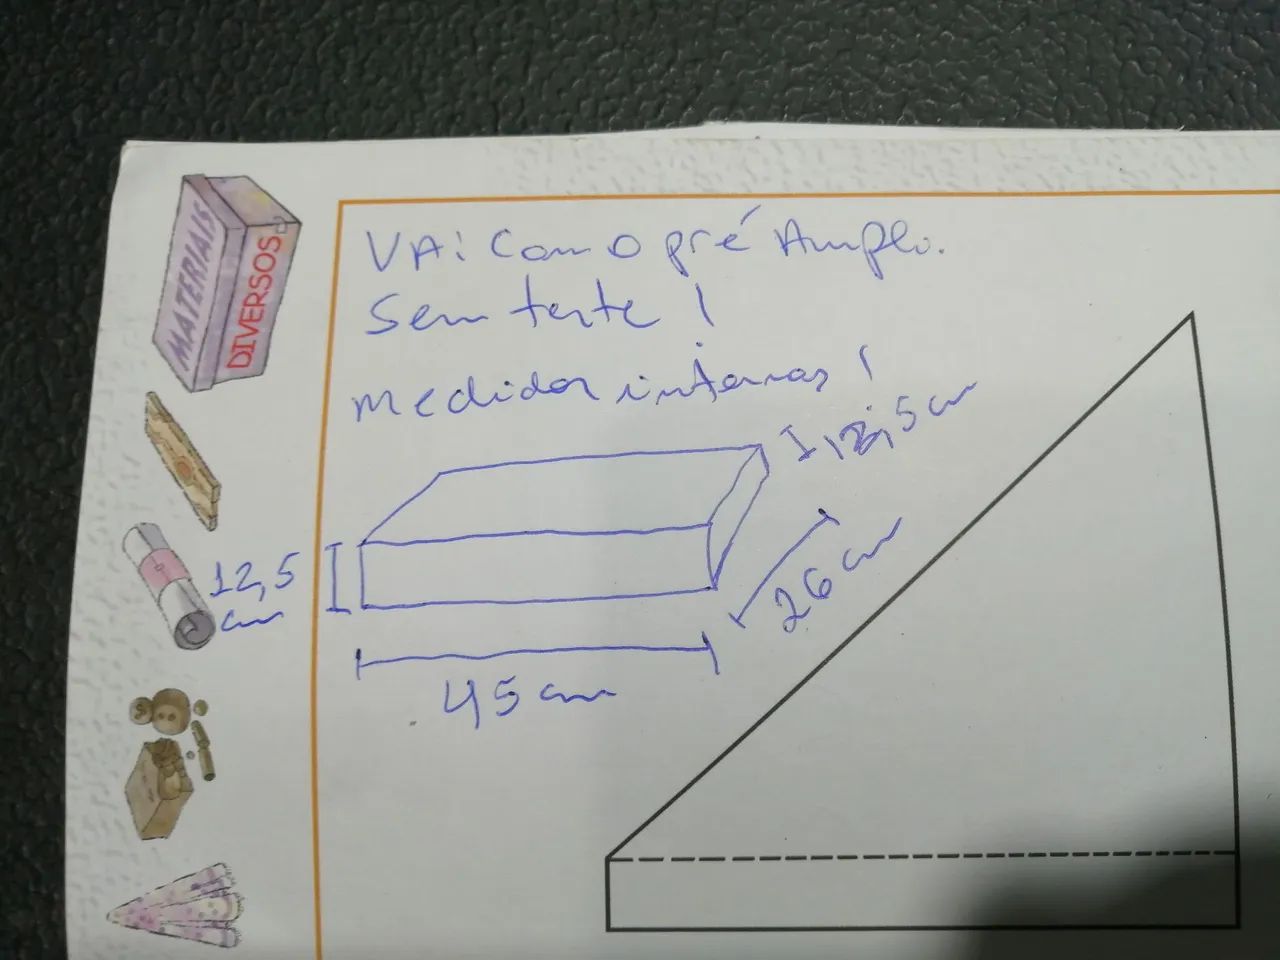 MATERIAIS
DIVERSOS
VAi Com o pré Amplo.
Sem teste !
medidas internas !
12,5 cm
12,5
cm
26 cm
45 cm